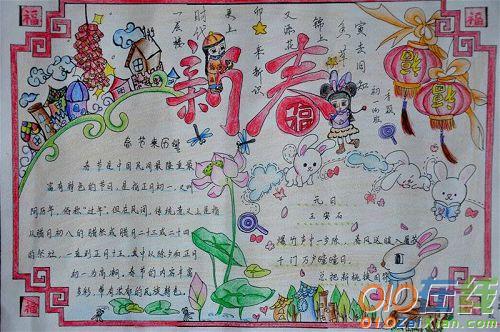 福
福
新春
福
春节来历
春节是中国民间最隆重最
富有特色的节日,是指正月初一,又叫
阴历年,俗称“过年”。但在民间,传统意义上是指
从腊月初八的腊祭或腊月二十三或二十四
的祭灶,一直到正月十五,其中以除夕和正月
初一为高潮。春节的内容丰富
多彩,带有浓郁的民族特色。
元日
王安石
爆竹声中一岁除,春风送暖入屠苏
千门万户瞳瞳日,
总把新桃换旧符
福
910在线
910zaixian.com